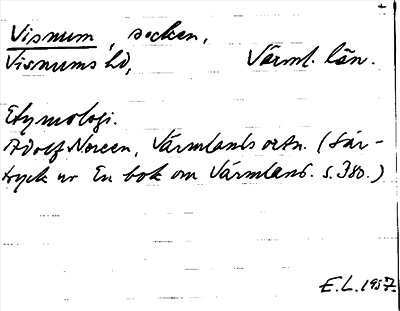 Visnum, socken,
Visnums hd, Värml. län.
Etymologi.
Adolf Noreen, Värmlands ortn. (Sär-
tryck ur En bok om Värmland. s. 380.)
E.L. 1957.